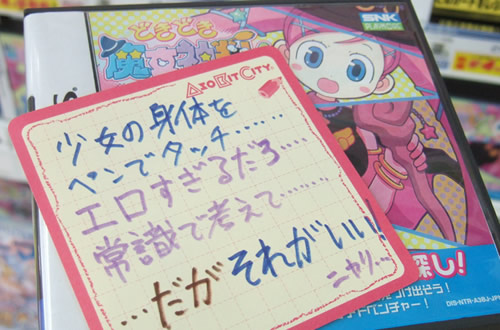 どきどき
魔女神判
SNK
PLAYMORE
AsoBitCity.
少女の身体を
ペンでタッチ……
エロすぎるだろ…
常識で考えて……
…だがそれがいい!
ニヤリ…
探し!
つけ出そう!
ドベンチャー!